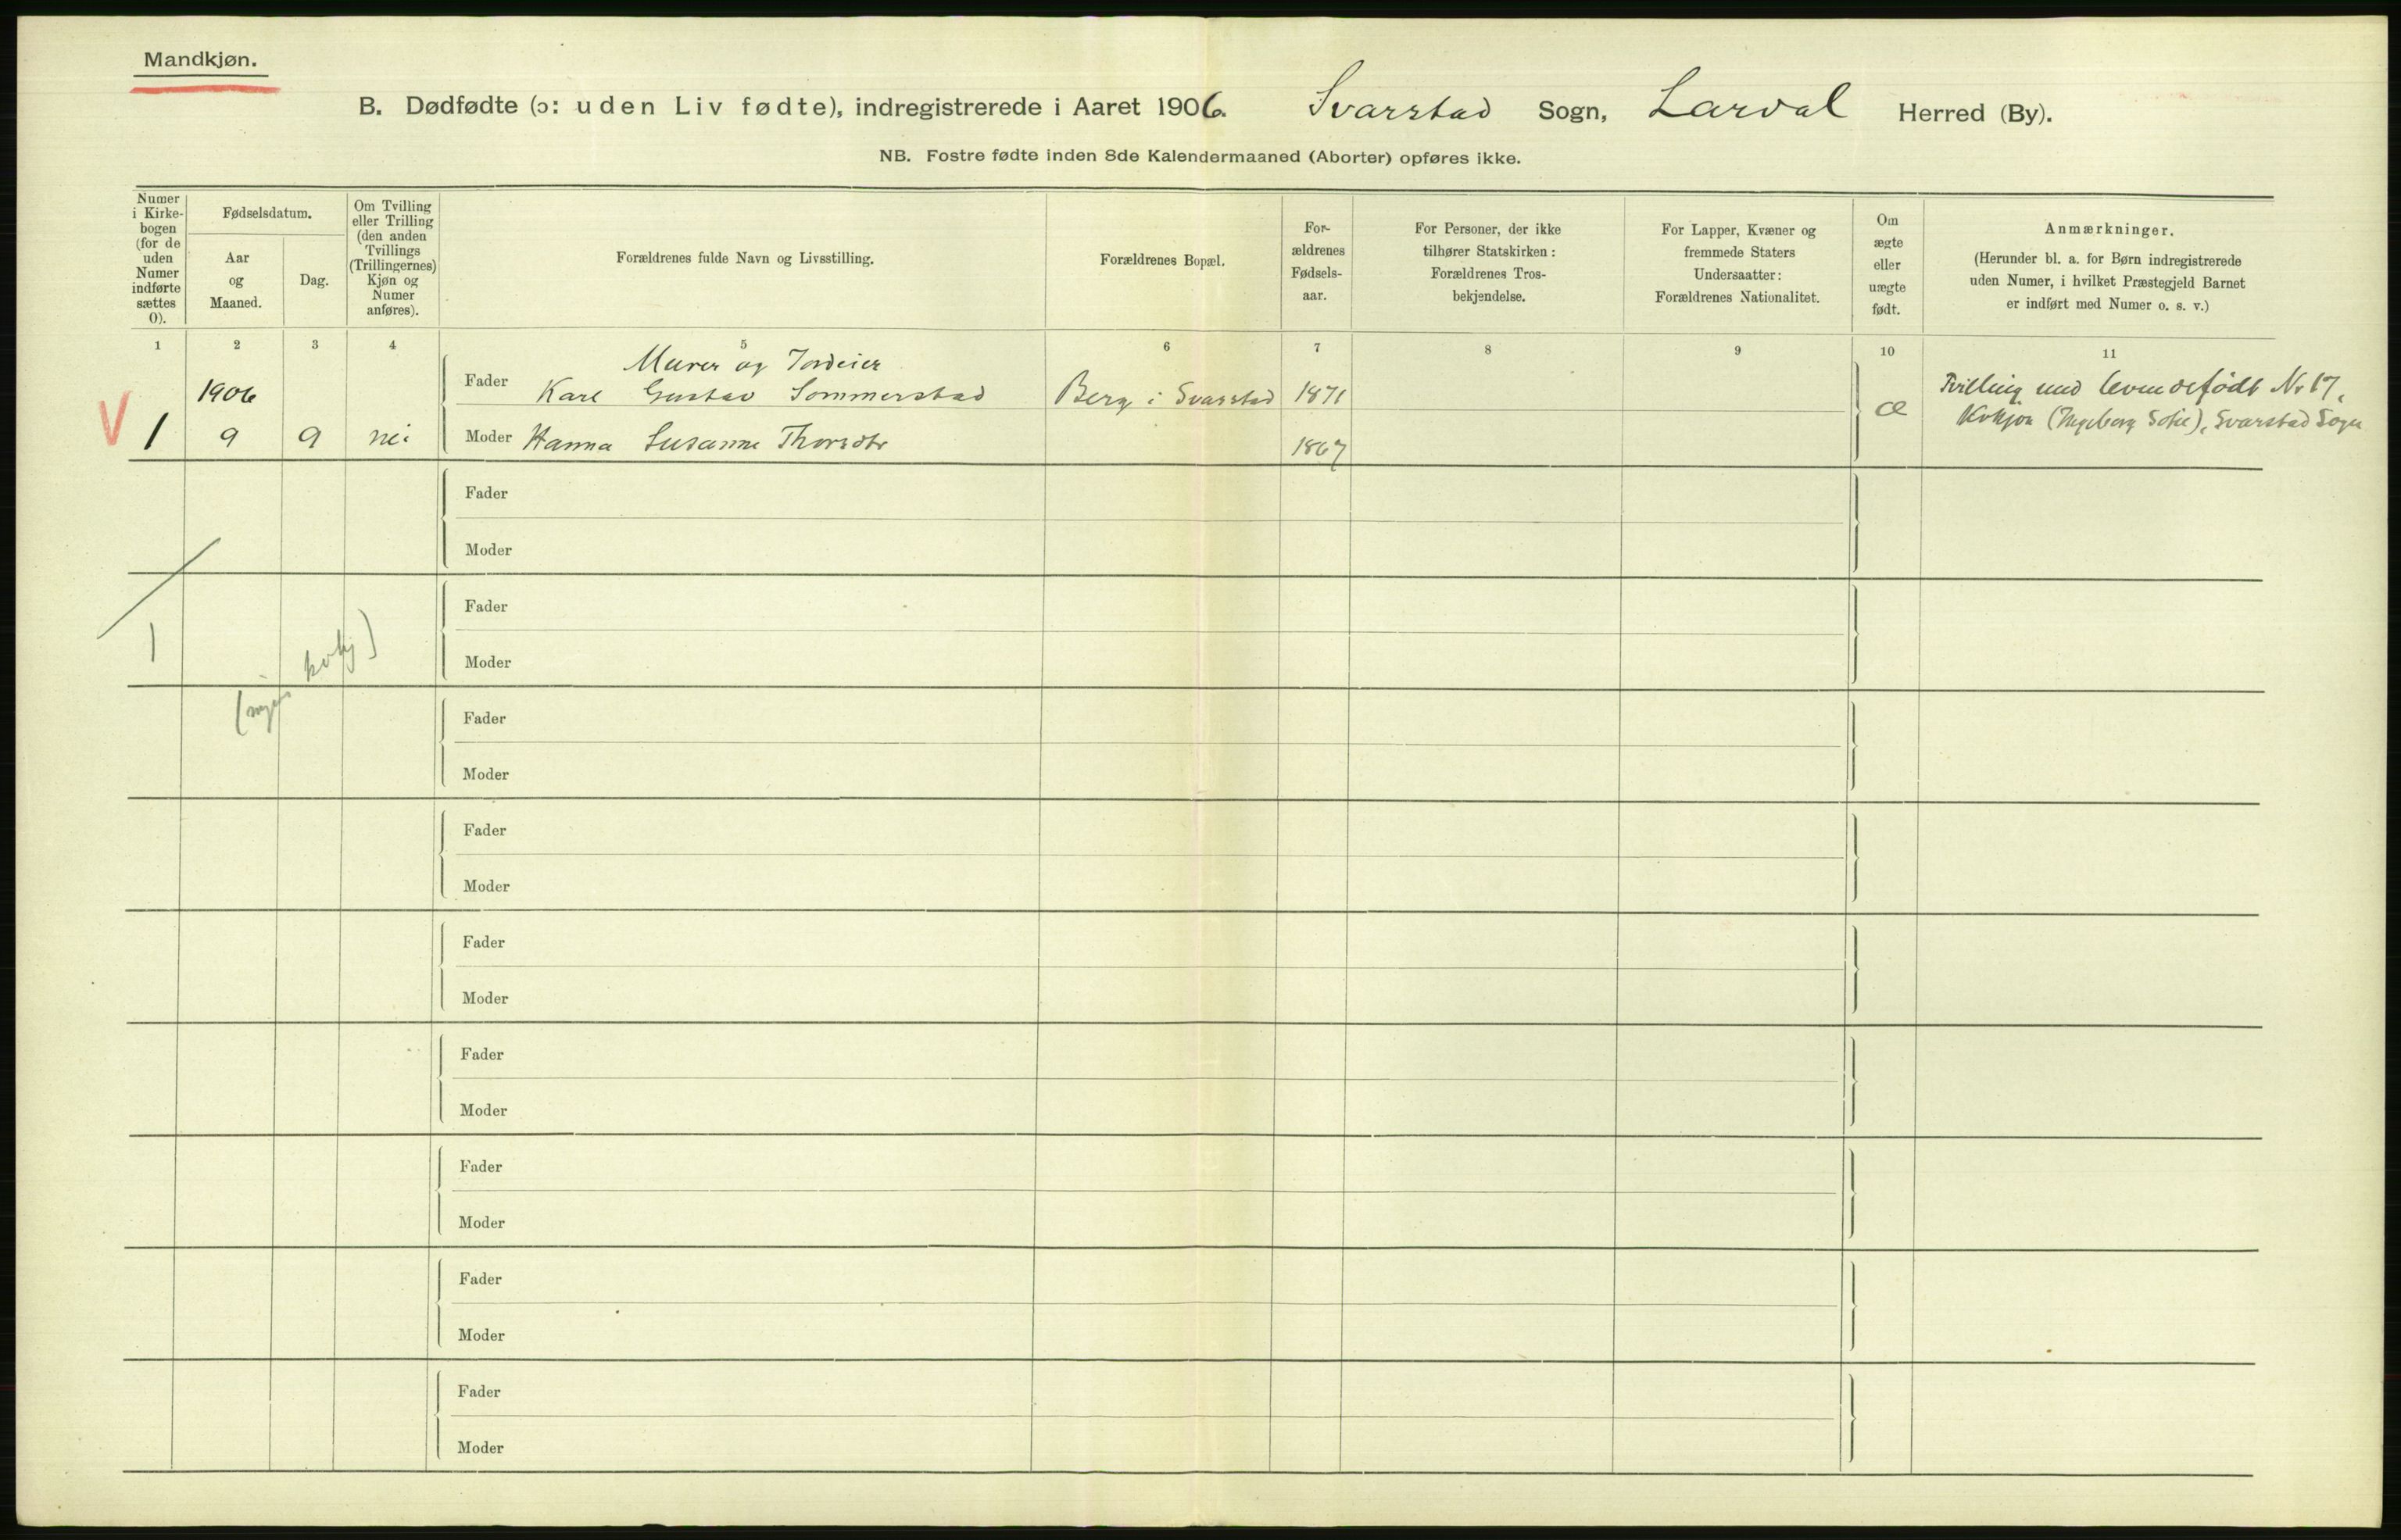 Mandkjøn.
B. Dødfødte (ɔ: uden Liv fødte), indregistrerede i Aaret 1906. Svarstad Sogn, Larval Herred (By).
NB. Fostre fødte inden 8de Kalendermaaned (Aborter) opføres ikke.
Numer
i Kirke-
bogen
(for de
uden
Numer
indførte
sættes
0).
Fødselsdatum.
Aar
og
Maaned.
Dag.
Om Tvilling
eller Trilling
(den anden
Tvillings
(Trillingernes)
Kjøn og
Numer
anføres).
Forældrenes fulde Navn og Livsstilling.
Forældrenes Bopæl.
For-
ældrenes
Fødsels-
aar.
For Personer, der ikke
tilhører Statskirken:
Forældrenes Tros-
bekjendelse.
For Lapper, Kvæner og
fremmede Staters
Undersaatter:
Forældrenes Nationalitet.
Om
ægte
eller
uægte
født.
Anmærkninger.
(Herunder bl. a. for Børn indregistrerede
uden Numer, i hvilket Præstegjeld Barnet
er indført med Numer o. s. v.)
1 2 3 4 5 6 7 8 9 10 11
Murer og Jordeier
1906 Fader Karl Gustav Sommerstad Berg i Svarstad 1871
V 1 9 9 nei Moder Hanna Susanne Thorsdtr 1867
æ
Tvilling med levendefødt Nr 17,
Kvkjøn (Ingeborg Sofie), Svarstad Sogn
Fader
Moder
Fader
1
Moder
(ingen kvkj)
Fader
Moder
Fader
Moder
Fader
Moder
Fader
Moder
Fader
Moder
Fader
Moder
Fader
Moder